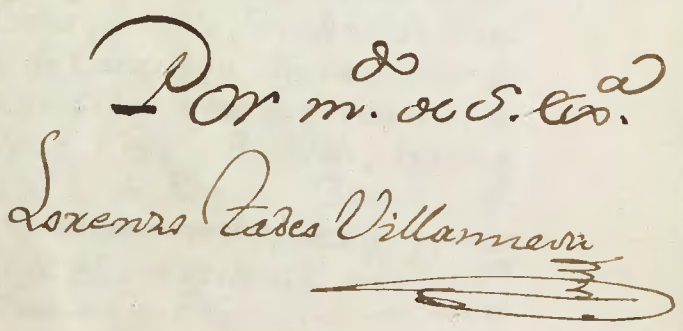 Por m.do de S. Ex.a
Lorenzo Tadeo Villanueva